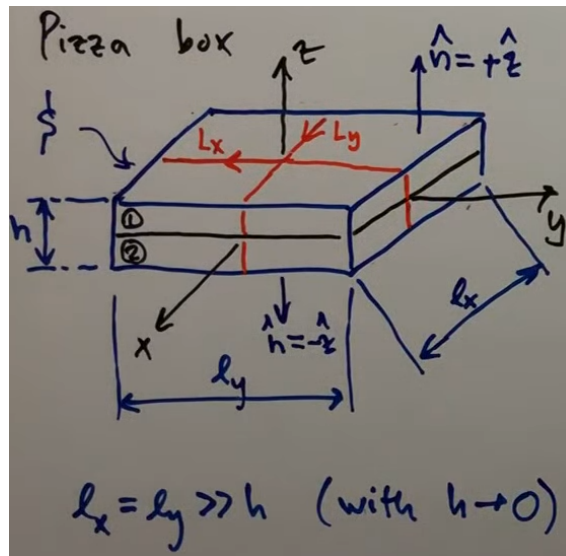 Pizza box
z
n̂ = +ẑ
S
Lx
Ly
h
①
②
y
x
n̂ = -ẑ
lx
ly
lx = ly >> h (with h → 0)